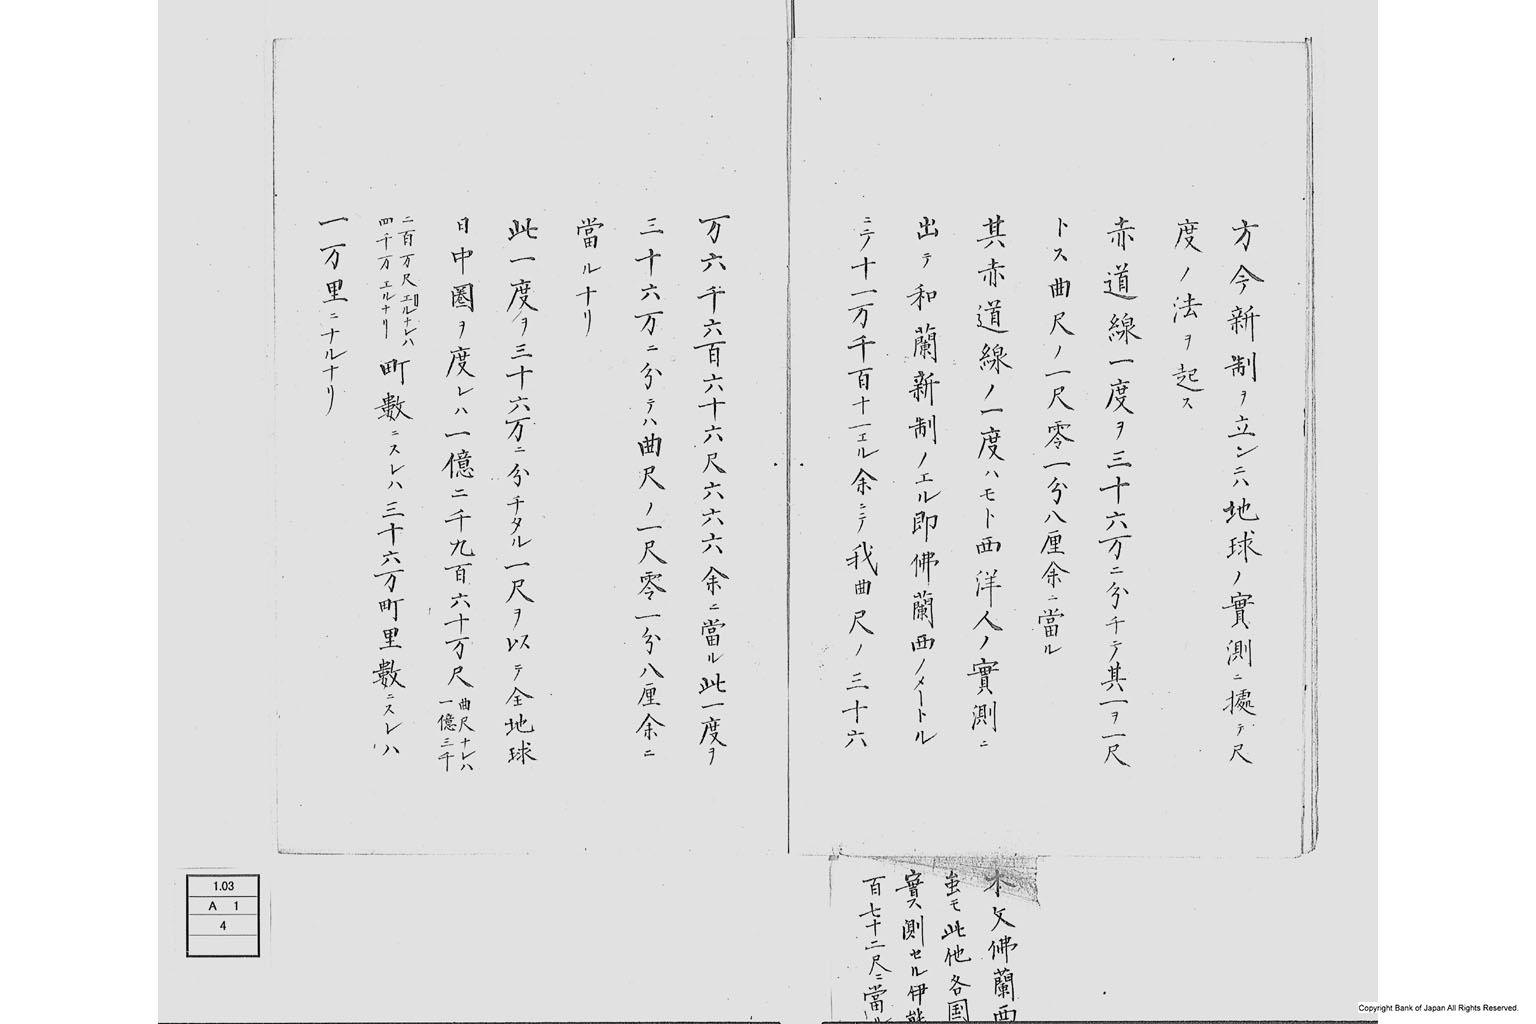 方今新制ヲ立ンニハ地球ノ實測ニ據テ尺
度ノ法ヲ起ス
赤道線一度ヲ三十六万ニ分チテ其一ヲ一尺
トス曲尺ノ一尺零一分八厘余ニ當ル
其赤道線ノ一度ハモト西洋人ノ實測ニ
出テ和蘭新制ノエル即佛蘭西ノメートル
ニテ十一万千百十一エル余ニテ我曲尺ノ三十六
万六千六百六十六尺六六六余ニ當ル此一度ヲ
三十六万ニ分テハ曲尺ノ一尺零一分八厘余ニ
當ルナリ
此一度ヲ三十六万ニ分チタル一尺ヲ以テ全地球
日中圏ヲ度レハ一億二千九百六十万尺
曲尺ナレハ
一億三千
二百万尺エルナレハ
四千万エルナリ
町數ニスレハ三十六万町里數ニスレハ
一万里ニナルナリ
本文佛蘭西
虽モ此他各国
實測セル伊能
百七十二尺ニ當
1.03
A 1
4
Copyright Bank of Japan All Rights Reserved.